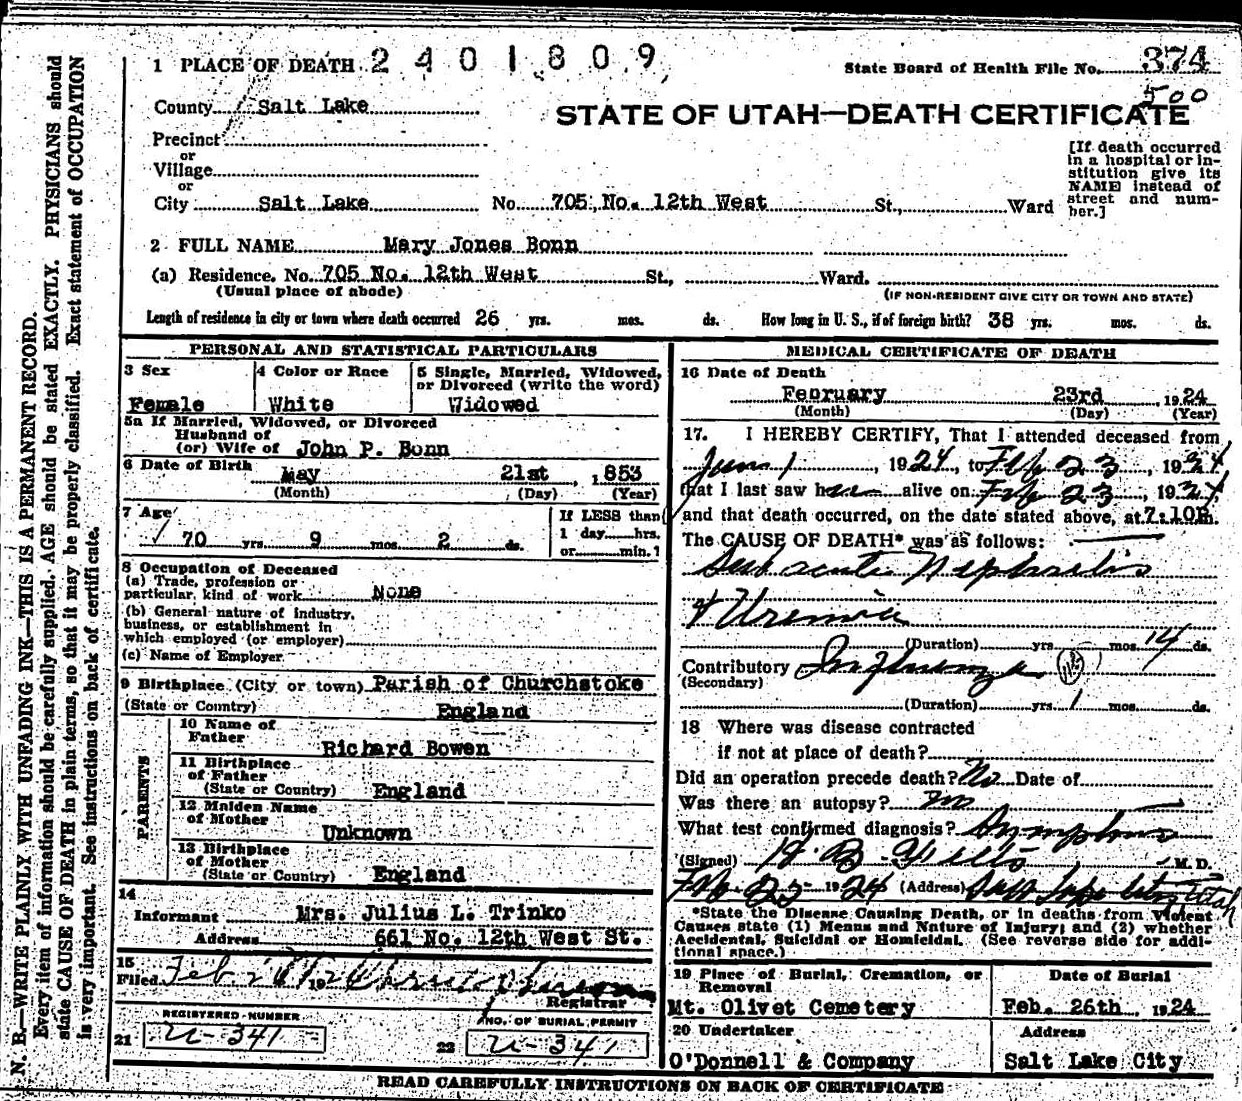 1 PLACE OF DEATH 2401809
State Board of Health File No. 374
500
County Salt Lake
STATE OF UTAH—DEATH CERTIFICATE
Precinct
or
Village
or
City Salt Lake No. 705 No. 12th West St., Ward
[If death occurred
in a hospital or in-
stitution give its
NAME instead of
street and num-
ber.]
2 FULL NAME Mary Jones Bonn
(a) Residence. No. 705 No. 12th West St., Ward.
(Usual place of abode)
(IF NON-RESIDENT GIVE CITY OR TOWN AND STATE)
Length of residence in city or town where death occurred 26 yrs. mos. ds. How long in U. S., if of foreign birth? 38 yrs. mos. ds.
PERSONAL AND STATISTICAL PARTICULARS
3 Sex
Female
4 Color or Race
White
5 Single, Married, Widowed,
or Divorced (write the word)
Widowed
5a If Married, Widowed, or Divorced
Husband of
(or) Wife of John P. Bonn
6 Date of Birth May 21st, 1853
(Month) (Day) (Year)
7 Age
70 yrs. 9 mos. 2 ds.
If LESS than
1 day hrs.
or min. ?
8 Occupation of Deceased
(a) Trade, profession or
particular, kind of work None
(b) General nature of industry,
business, or establishment in
which employed (or employer)
(c) Name of Employer
9 Birthplace (City or town) Parish of Churchstoke
(State or Country) England
PARENTS
10 Name of
Father Richard Bowen
11 Birthplace
of Father
(State or Country) England
12 Maiden Name
of Mother Unknown
13 Birthplace
of Mother
(State or Country) England
14
Informant Mrs. Julius L. Trinko
Address 661 No. 12th West St.
15
Filed Feb 192
Registrar
REGISTERED NUMBER
21 U-341
NO. OF BURIAL PERMIT
22 U-341
MEDICAL CERTIFICATE OF DEATH
16 Date of Death
February 23rd, 1924
(Month) (Day) (Year)
17. I HEREBY CERTIFY, That I attended deceased from
1, 1924, to Feb 23, 1924,
that I last saw her alive on Feb 23, 1924,
and that death occurred, on the date stated above, at 7:10P.m.
The CAUSE OF DEATH* was as follows:
Sub acute Nephritis
& Uremia
(Duration) yrs. mos. 14 ds.
Contributory Influenza
(Secondary)
(Duration) yrs. 1 mos. ds.
18 Where was disease contracted
if not at place of death?
Did an operation precede death? No Date of
Was there an autopsy? no
What test confirmed diagnosis? Symptoms
(Signed) M. D.
Feb. 25 1924 (Address) Salt Lake City Utah
*State the Disease Causing Death, or in deaths from Violent
Causes state (1) Means and Nature of Injury; and (2) whether
Accidental, Suicidal or Homicidal. (See reverse side for addi-
tional space.)
19 Place of Burial, Cremation, or
Removal
Mt. Olivet Cemetery
Date of Burial
Feb. 26th, 1924
20 Undertaker
O'Donnell & Company
Address
Salt Lake City
READ CAREFULLY INSTRUCTIONS ON BACK OF CERTIFICATE
N. B.—WRITE PLAINLY WITH UNFADING INK—THIS IS A PERMANENT RECORD.
Every item of information should be carefully supplied. AGE should be stated EXACTLY. PHYSICIANS should
state CAUSE OF DEATH in plain terms, so that it may be properly classified. Exact statement of OCCUPATION
is very important. See instructions on back of certificate.